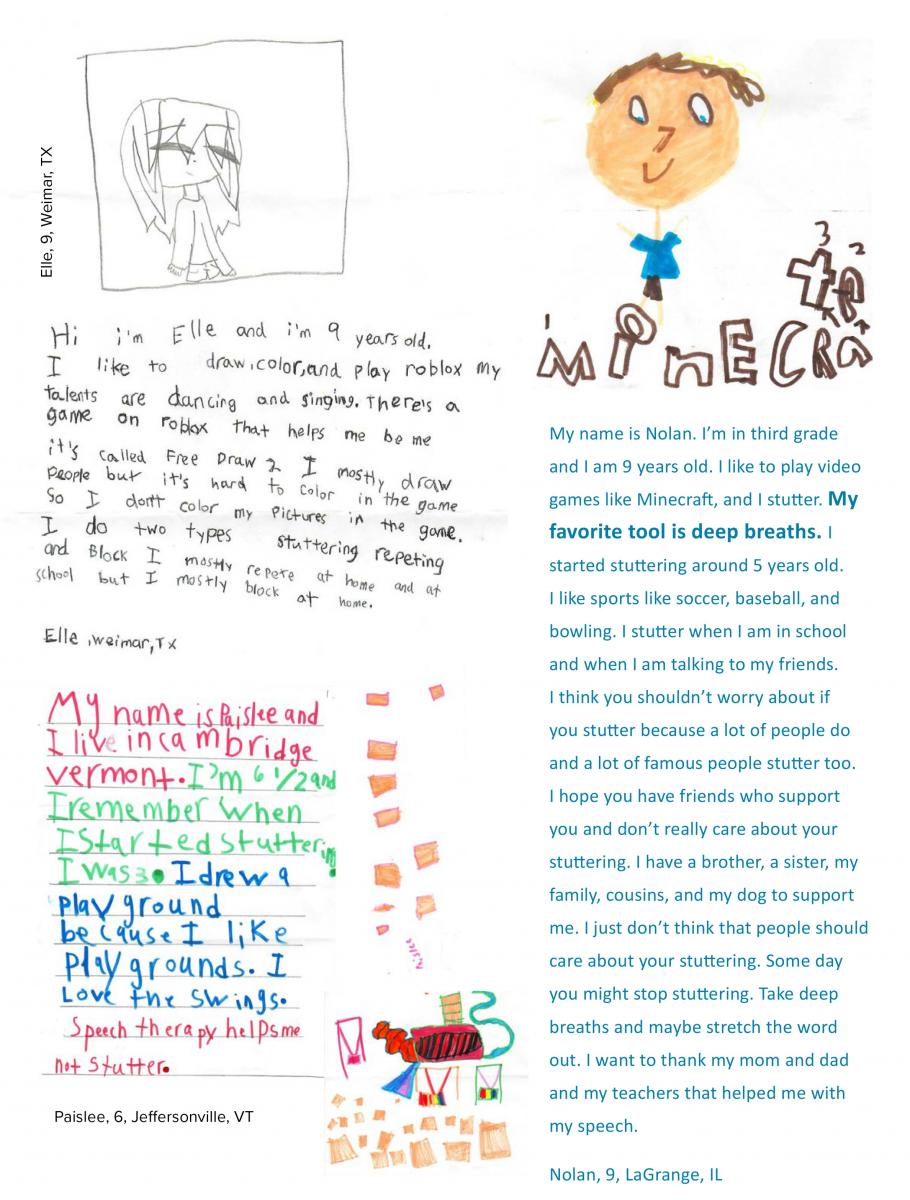 Elle, 9, Weimar, TX
Hi i'm Elle and i'm 9 years old.
I like to draw, color, and play roblox my
talents are dancing and singing. There's a
game on roblox that helps me be me
it's called Free Draw 2 I mostly draw
People but it's hard to color in the game
So I don't color my Pictures in the game.
I do two types stuttering repeting
and Block I mostly repete at home and at
school but I mostly block at home.
Elle, weimar, TX
My name is Paislee and
I live in cambridge
vermont. I'm 6 1/2 and
I remember when
I Started stuttering
I was 3. I drew a
play ground
because I like
playgrounds. I
Love the swings.
Speech therapy helps me
not stutter.
Paislee, 6, Jeffersonville, VT
3
2
te
1
MiNECRa
My name is Nolan. I'm in third grade
and I am 9 years old. I like to play video
games like Minecraft, and I stutter. My
favorite tool is deep breaths. I
started stuttering around 5 years old.
I like sports like soccer, baseball, and
bowling. I stutter when I am in school
and when I am talking to my friends.
I think you shouldn't worry about if
you stutter because a lot of people do
and a lot of famous people stutter too.
I hope you have friends who support
you and don't really care about your
stuttering. I have a brother, a sister, my
family, cousins, and my dog to support
me. I just don't think that people should
care about your stuttering. Some day
you might stop stuttering. Take deep
breaths and maybe stretch the word
out. I want to thank my mom and dad
and my teachers that helped me with
my speech.
Nolan, 9, LaGrange, IL